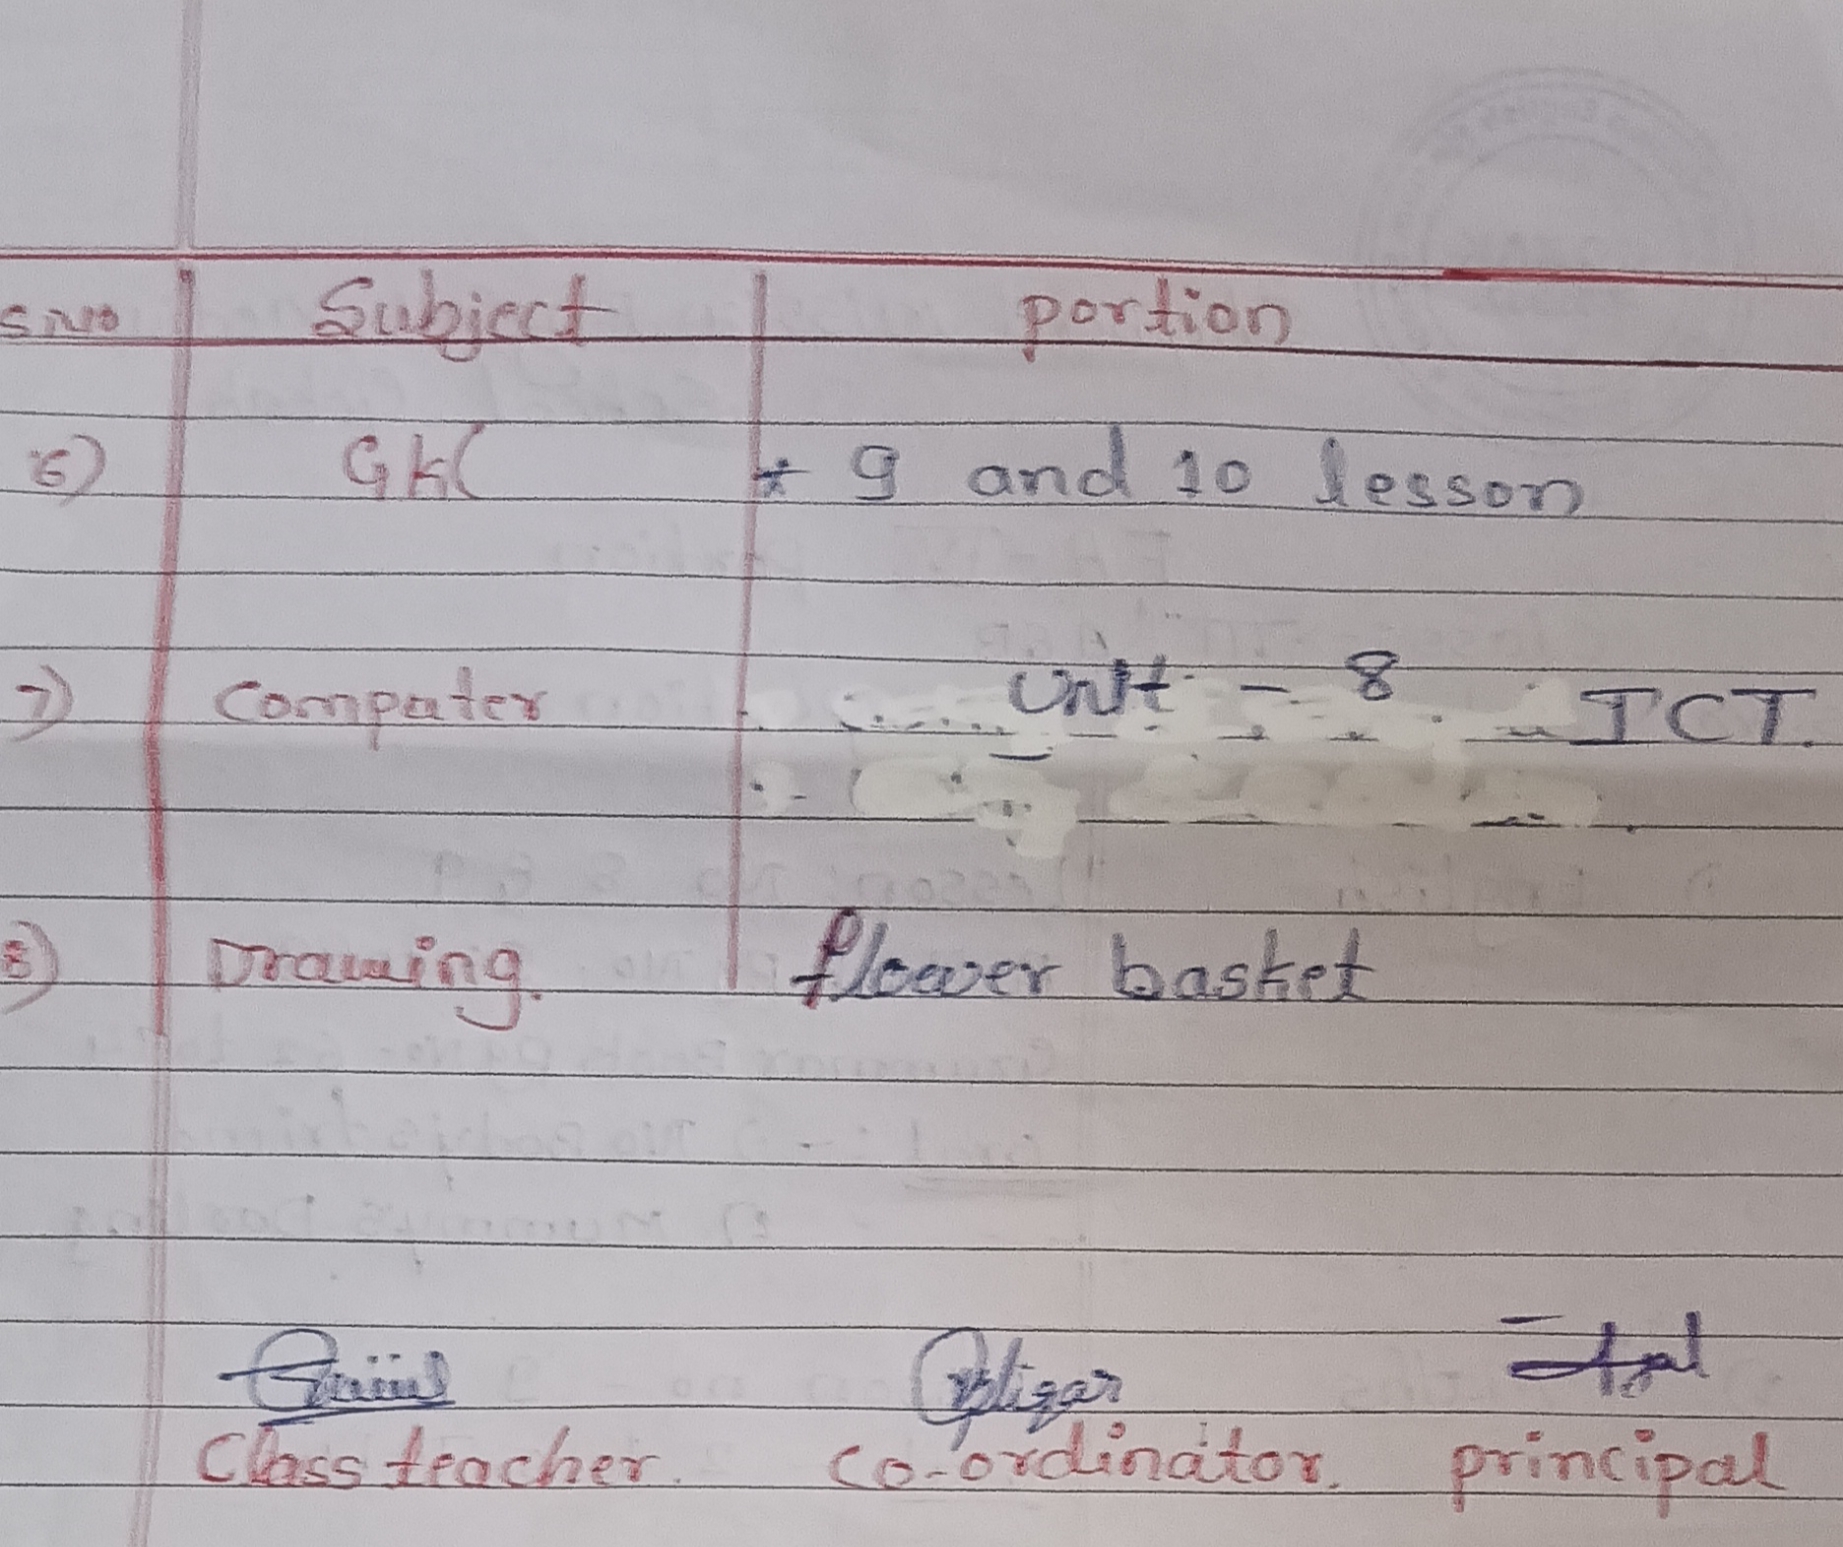 S.No Subject portion
6) GK * 9 and 10 lesson
7) Computer Unit - 8 ICT.
8) Drawing. flower basket
Class teacher. co-ordinator. principal